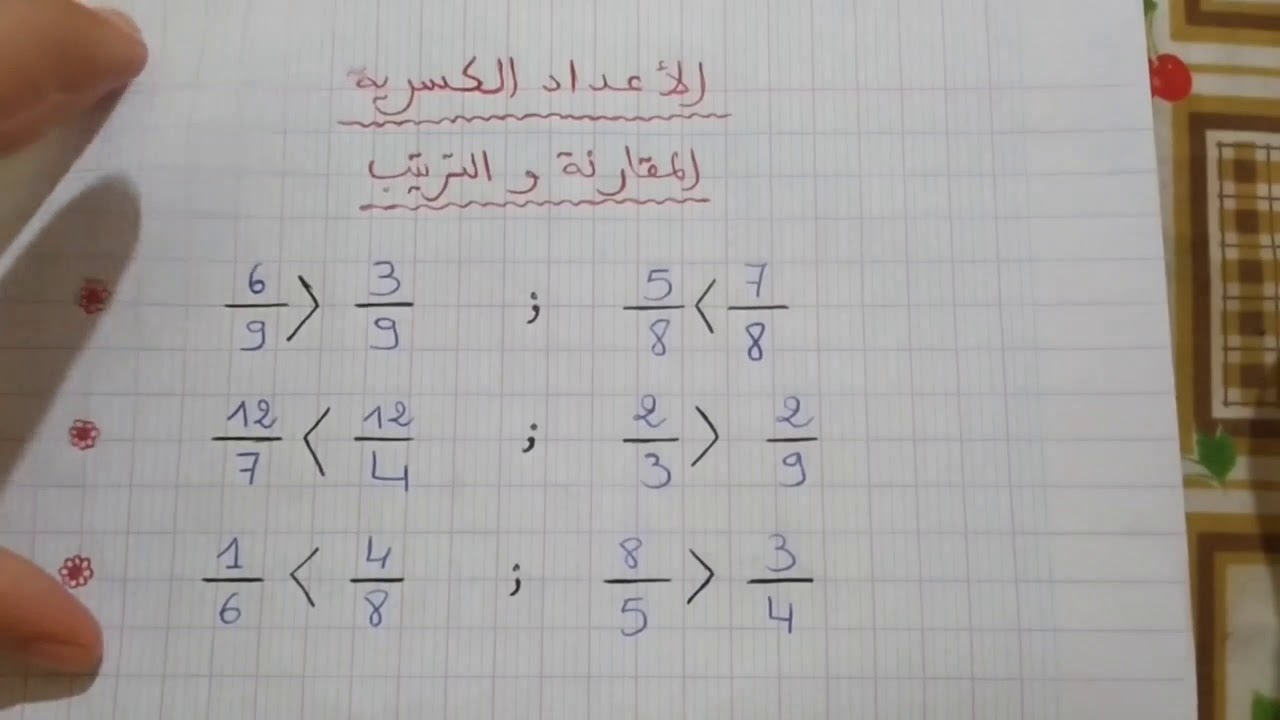 الأعداد الكسرية
المقارنة و الترتيب
6/9 > 3/9 ; 5/8 < 7/8
12/7 < 12/4 ; 2/3 > 2/9
1/6 < 4/8 ; 8/5 > 3/4